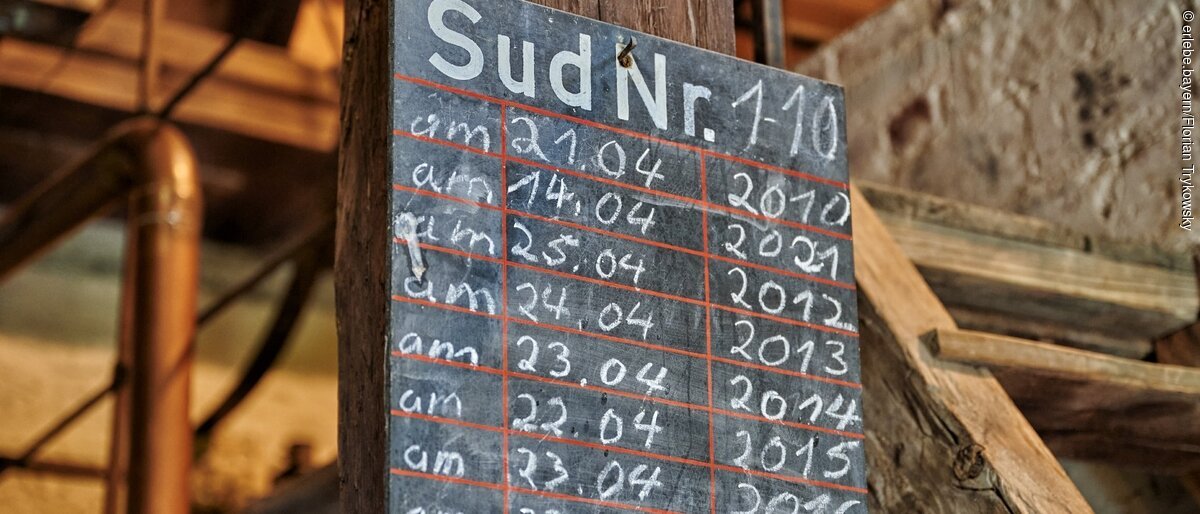 Sud Nr. 1-10
am 21.04 2010
am 14.04 2021
am 25.04 2012
am 24.04 2013
am 23.04 2014
am 22.04 2015
am 23.04
© erlebe.bayern/Florian Trykowsky